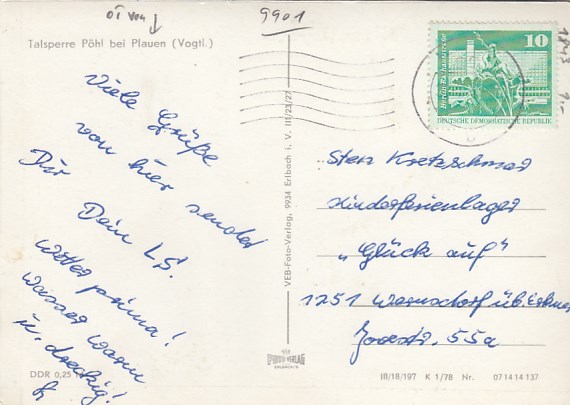 ÖT von ↓
9901
Talsperre Pöhl bei Plauen (Vogtl.)
Viele Grüße
von hier sendet
Dir Dein LS!
Wetter prima!
Wasser warm
u. dreckig!
VEB-Foto-Verlag, 9934 Erlbach i. V. III/23/27
10
Berlin, Rathausstraße
DEUTSCHE DEMOKRATISCHE REPUBLIK
1843
1,-
Sten Kretzschmar
Kinderferienlager
"Glück auf"
1251 Wernsdorf üb. Erkner
55a
DDR 0,25
FOTO VERLAG
ERLBACH/V.
III/18/197 K 1/78 Nr. 07 14 14 137